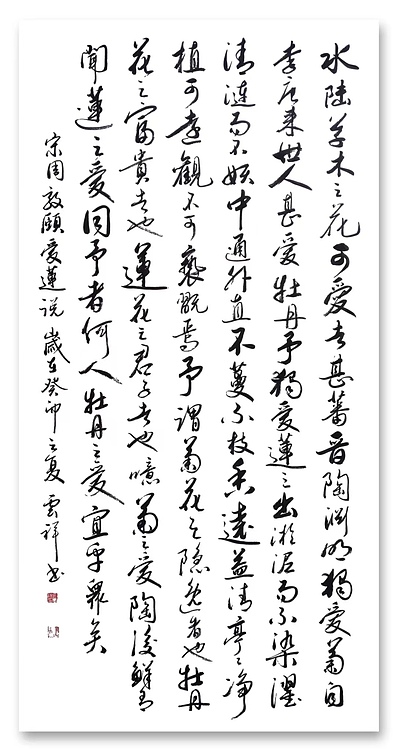 水陸草木之花可愛者甚蕃晉陶淵明獨愛菊自
李唐來世人甚愛牡丹予獨愛蓮之出淤泥而不染濯
清漣而不妖中通外直不蔓不枝香遠益清亭々淨
植可遠觀不可褻翫焉予謂菊花之隱逸者也牡丹
花之富貴者也蓮花之君子者也噫菊之愛陶後鮮有
聞蓮之愛同予者何人牡丹之愛宜乎衆矣
宋周敦頤愛蓮說 歲在癸卯之夏 雲祥書